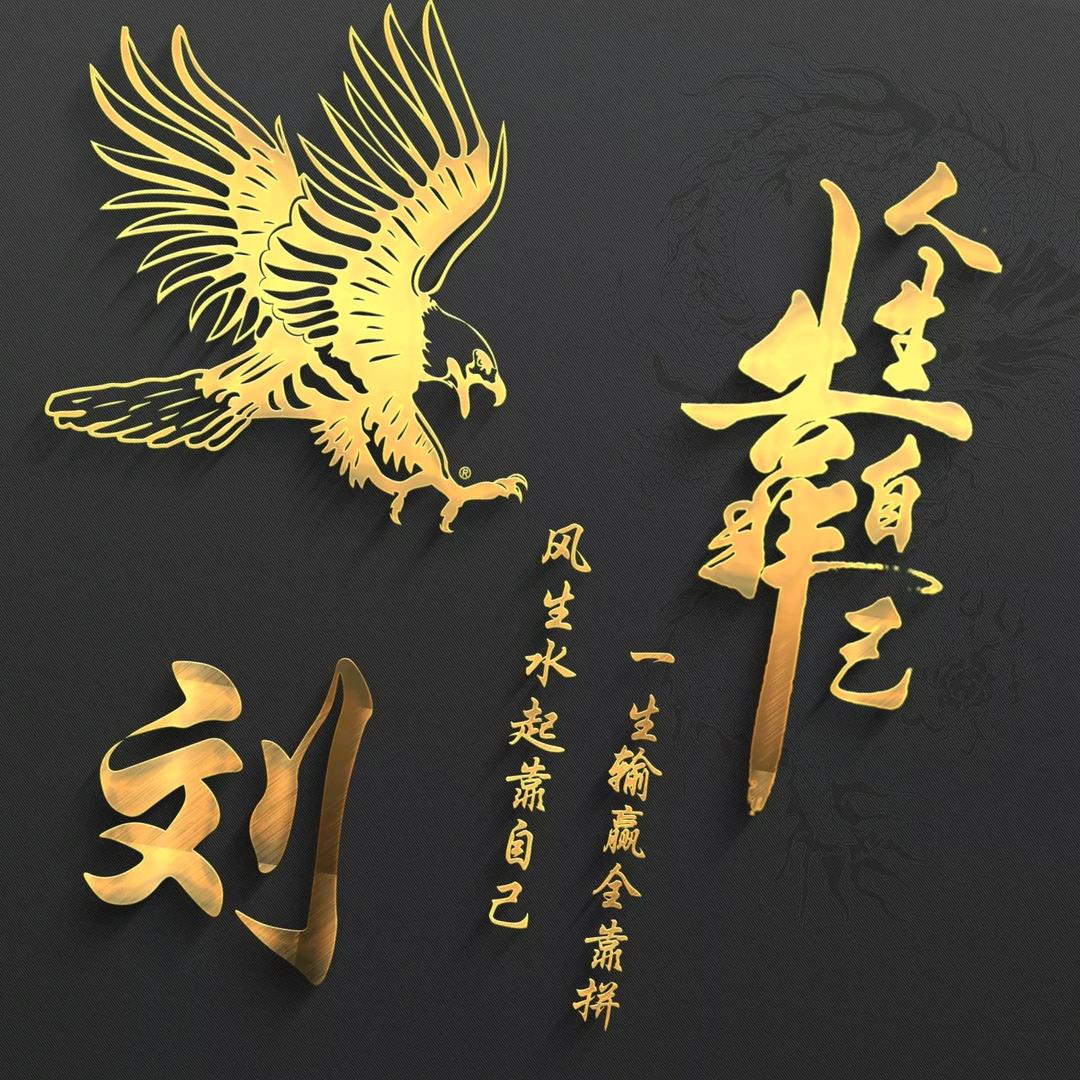 人生靠自己
一生输赢全靠拼
风生水起靠自己
刘
®